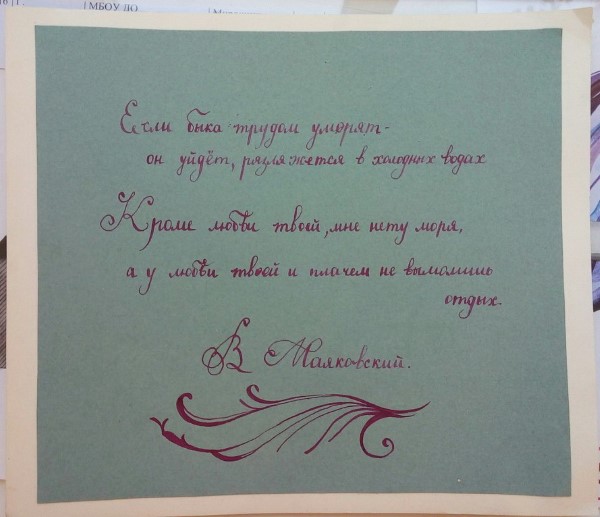 МБОУ ДО
Если быка трудом уморят -
он уйдёт, разляжется в холодных водах
Кроме любви твоей, мне нету моря,
а у любви твоей и плачем не вымолишь
отдых.
В Маяковский.